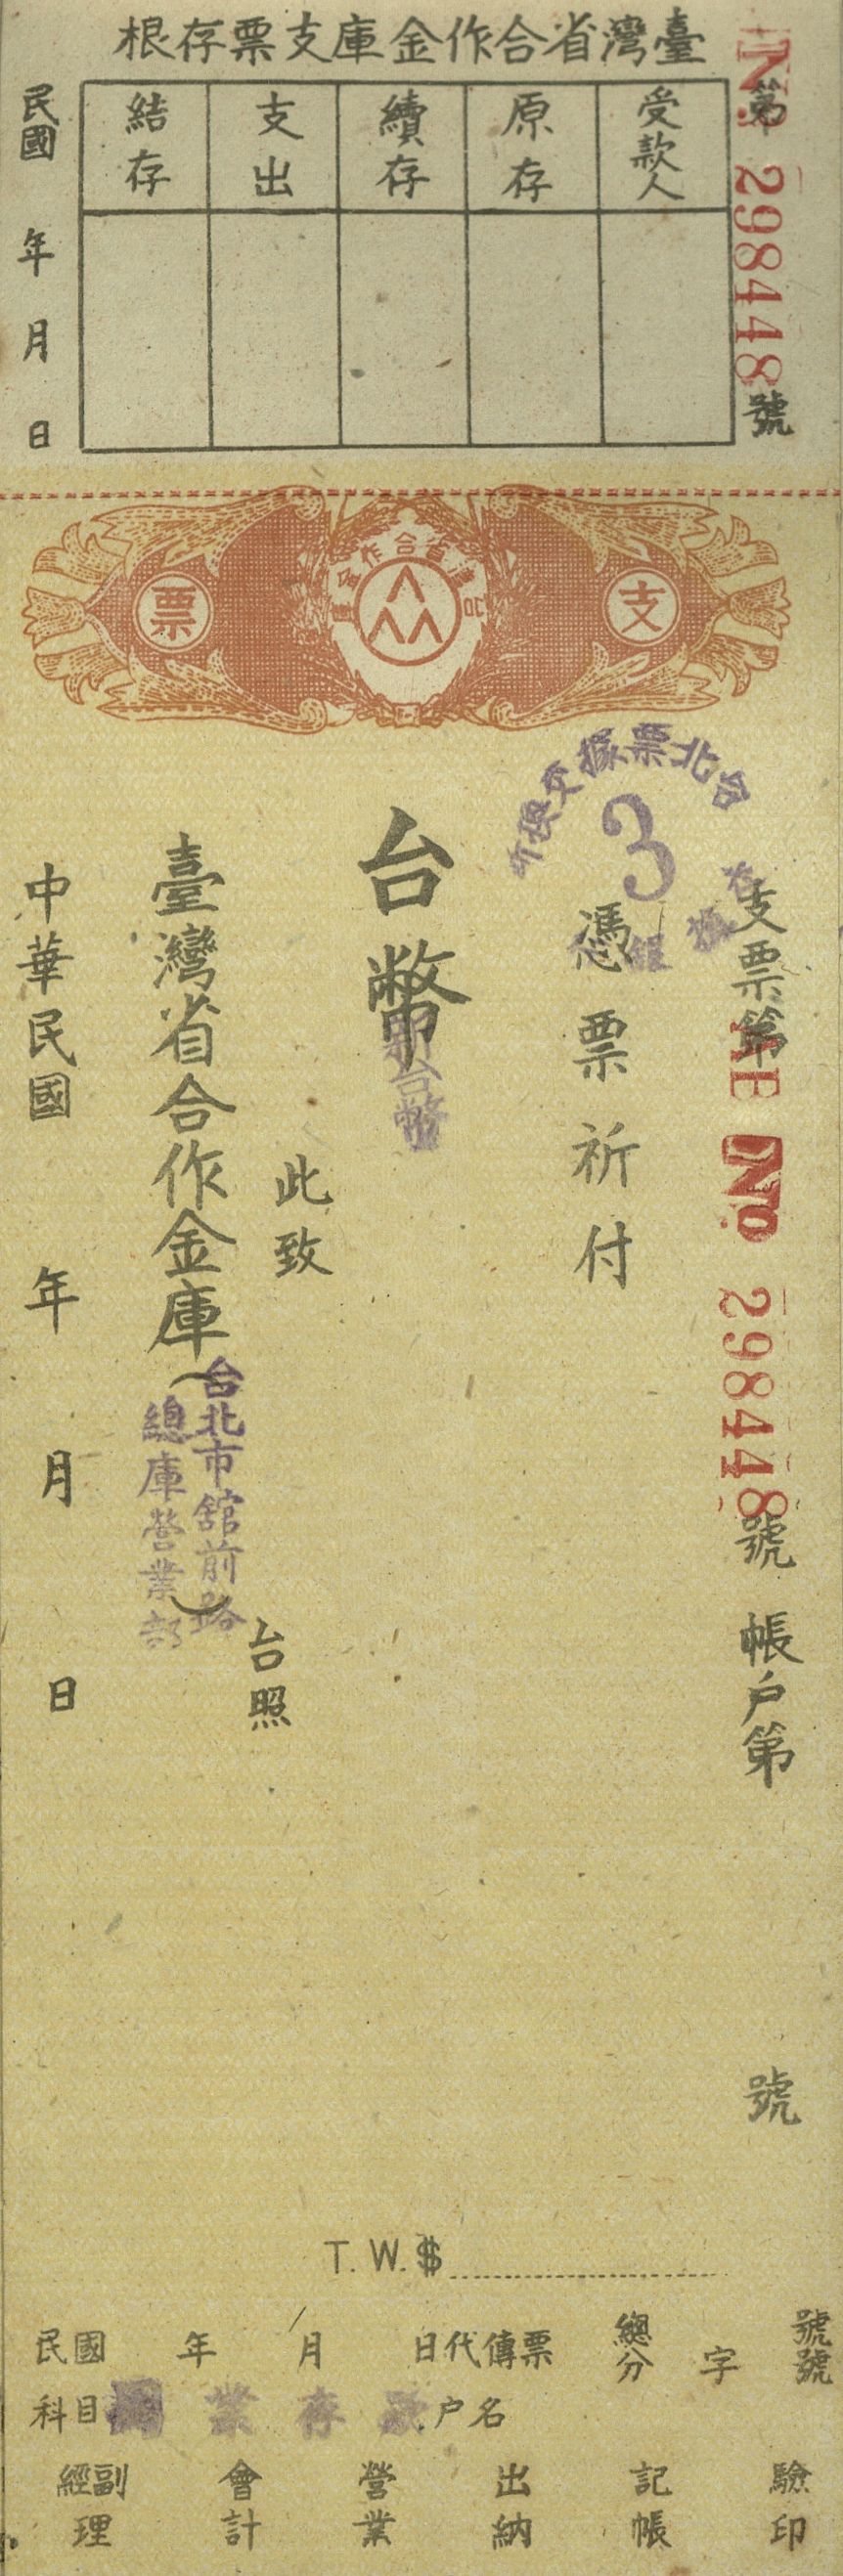 臺灣省合作金庫支票存根
第 No 298448 號
受款人
原存
續存
支出
結存
民國 年 月 日
支票
臺灣省合作金庫
台北票據交換所
3
支票第 AE No 298448 號 帳戶第 號
憑票祈付
台幣
新台幣
此致
臺灣省合作金庫
(台北市舘前路
總庫營業部)
台照
中華民國 年 月 日
T. W. $
民國 年 月 日代傳票 總分 字 號號
科目 業存款 戶名
經副理 會計 營業 出納 記帳 驗印